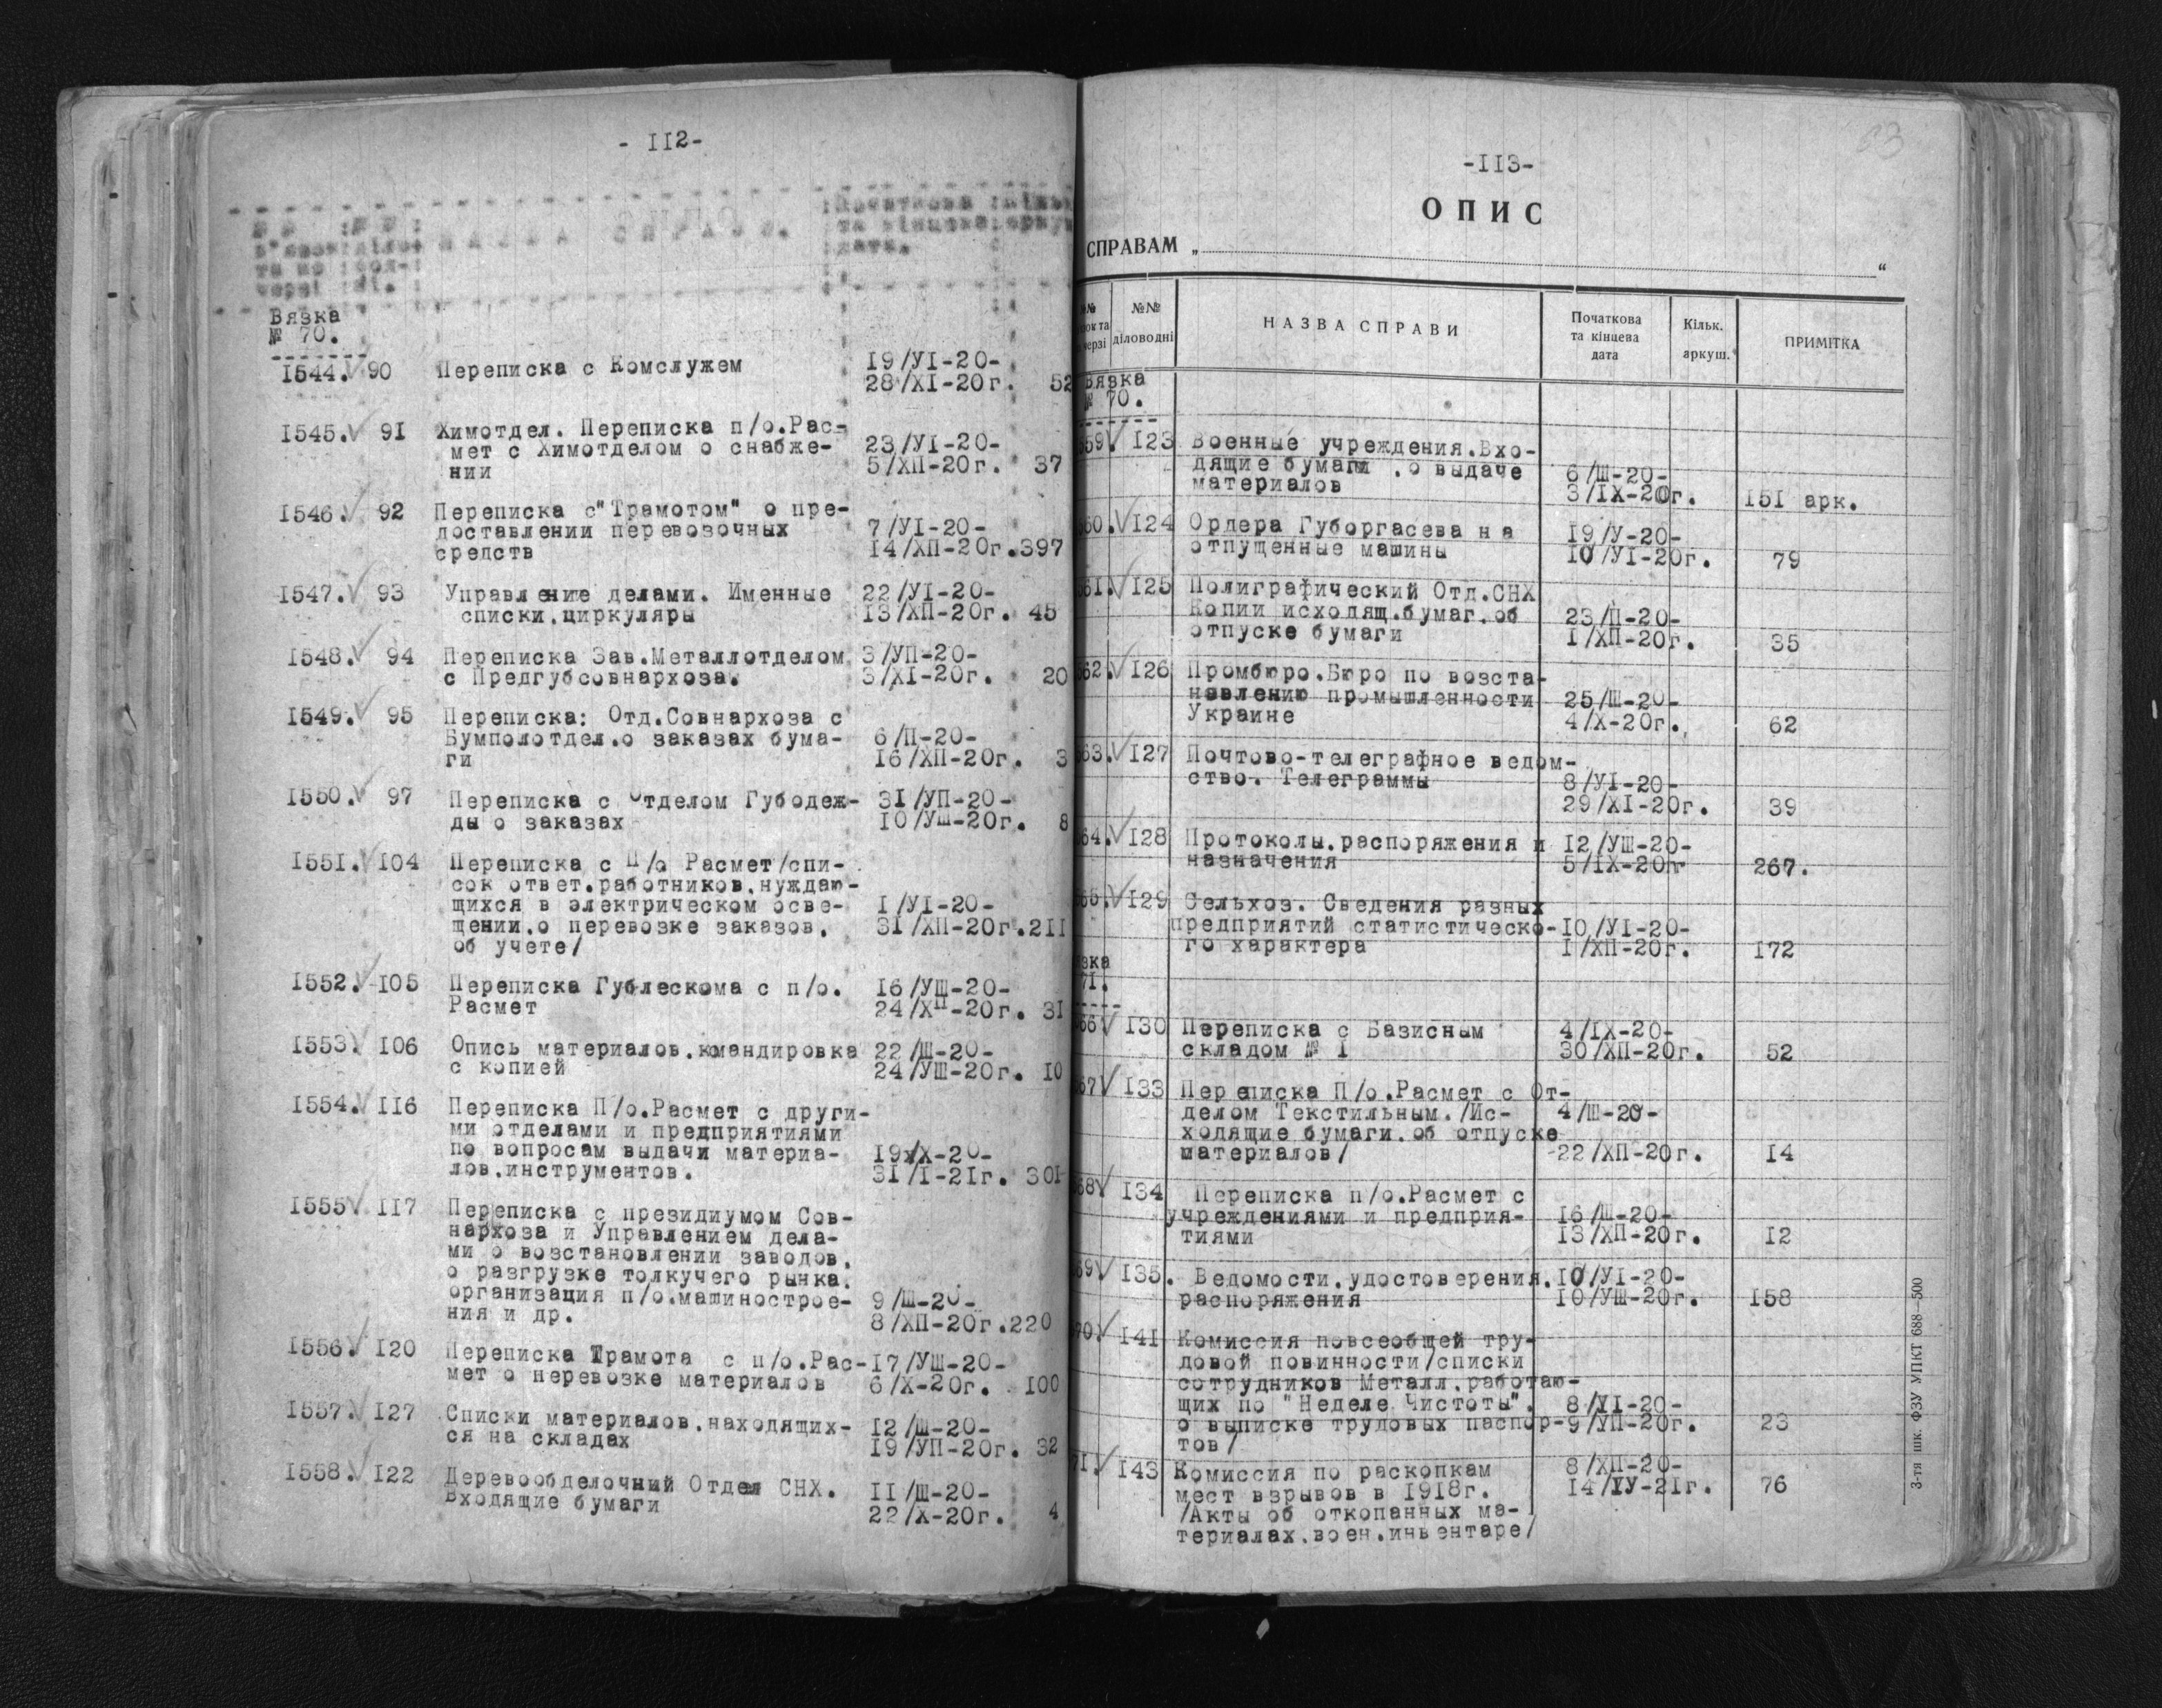 - II2-
№ №
НАЗВА СПРАВИ.
Початкова
та кінцева
дата.
Вязка
№ 70.
I544. 90 Переписка с Комслужем 19/УI-20-
28/XI-20г. 52
I545. 9I Химотдел. Переписка п/о.Рас-
мет с Химотделом о снабже- 23/УI-20-
нии 5/ХП-20г. 37
I546. 92 Переписка с"Трамотом" о пре-
доставлении перевозочных 7/УI-20-
средств I4/ХП-20г.397
I547. 93 Управление делами. Именные 22/УI-20-
списки,циркуляры I3/ХП-20г. 45
I548. 94 Переписка Зав.Металлотделом 3/УП-20-
с Предгубсовнархоза. 3/XI-20г. 20
I549. 95 Переписка: Отд.Совнархоза с
Бумполотдел.о заказах бума- 6/П-20-
ги I6/ХП-20г. 3
I550. 97 Переписка с Отделом Губодеж- 3I/УП-20-
ды о заказах I0/УШ-20г. 8
I55I. I04 Переписка с П/о Расмет/спи-
сок ответ.работников,нуждаю-
щихся в электрическом осве- I/УI-20-
щении,о перевозке заказов, 3I/ХП-20г.2II
об учете/
I552. I05 Переписка Гублескома с п/о. I6/УШ-20-
Расмет 24/ХП-20г. 3I
I553. I06 Опись материалов,командировка 22/Ш-20-
с копией 24/УШ-20г. I0
I554. II6 Переписка П/о.Расмет с други-
ми отделами и предприятиями
по вопросам выдачи материа- I9/X-20-
лов,инструментов. 3I/I-2Iг. 30I
I555 II7 Переписка с президиумом Сов-
нархоза и Управлением дела-
ми о возстановлении заводов,
о разгрузке толкучего рынка,
организация п/о.машинострое- 9/Ш-20-
ния и др. 8/ХП-20г.220
I556. I20 Переписка Трамота с п/о.Рас-I7/УШ-20-
мет о перевозке материалов 6/X-20г. I00
I557. I27 Списки материалов,находящих- I2/Ш-20-
ся на складах I9/УП-20г. 32
I558. I22 Деревообделочный Отдел СНХ. II/Ш-20-
Входящие бумаги 22/X-20г. 4
63
-II3-
ОПИС
СПРАВАМ „ “
№№ НАЗВА СПРАВИ Початкова та кінцева дата Кільк. аркуш. ПРИМІТКА
діловодні
Вязка
№ 70.
59. I23 Военные учреждения.Вхо-
дящие бумаги .о выдаче 6/Ш-20-
материалов 3/IX-20г. I5I арк.
60. I24 Ордера Губоргасева на I9/У-20-
отпущенные машины I0/УI-20г. 79
6I. I25 Полиграфический Отд.СНХ
Копии исходящ.бумаг,об 23/П-20-
отпуске бумаги I/ХП-20г. 35
62. I26 Промбюро.Бюро по возста-
новлению промышленности 25/Ш-20-
Украине 4/X-20г. 62
63. I27 Почтово-телеграфное ведом-
ство. Телеграммы 8/УI-20-
29/XI-20г. 39
64. I28 Протоколы,распоряжения и I2/УШ-20-
назначения 5/IX-20г 267.
65. I29 Сельхоз. Сведения разных
предприятий статистическо-I0/УI-20-
го характера I/ХП-20г. I72
зка
7I.
66 I30 Переписка с Базисным 4/IX-20-
складом № I 30/ХП-20г. 52
67 I33 Переписка П/о.Расмет с От-
делом Текстильным./Ис- 4/Ш-20-
ходящие бумаги,об отпуске
материалов/ 22/ХП-20г. I4
68 I34 Переписка п/о.Расмет с
учреждениями и предприя- I6/Ш-20-
тиями I3/ХП-20г. I2
69 I35. Ведомости,удостоверения, I0/УI-20-
распоряжения I0/УШ-20г. I58
70. I4I Комиссия повсеобщей тру-
довой повинности/списки
сотрудников Металл.работаю-
щих по "Неделе Чистоты", 8/УI-20-
о выписке трудовых паспор-9/УП-20г. 23
тов/
7I. I43 Комиссия по раскопкам 8/ХП-20-
мест взрывов в I9I8г. I4/IУ-2Iг. 76
/Акты об откопанных ма-
териалах,воен.инвентаре/
3-тя шк. ФЗУ УПКТ 688—500